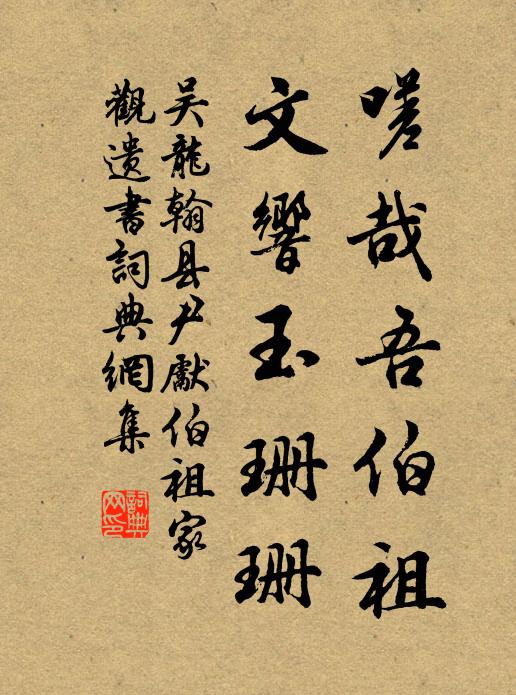 嗟哉吾伯祖
文響玉珊珊
吳龍翰县尹獻伯祖家
觀遺書詞典網集
詞典網印